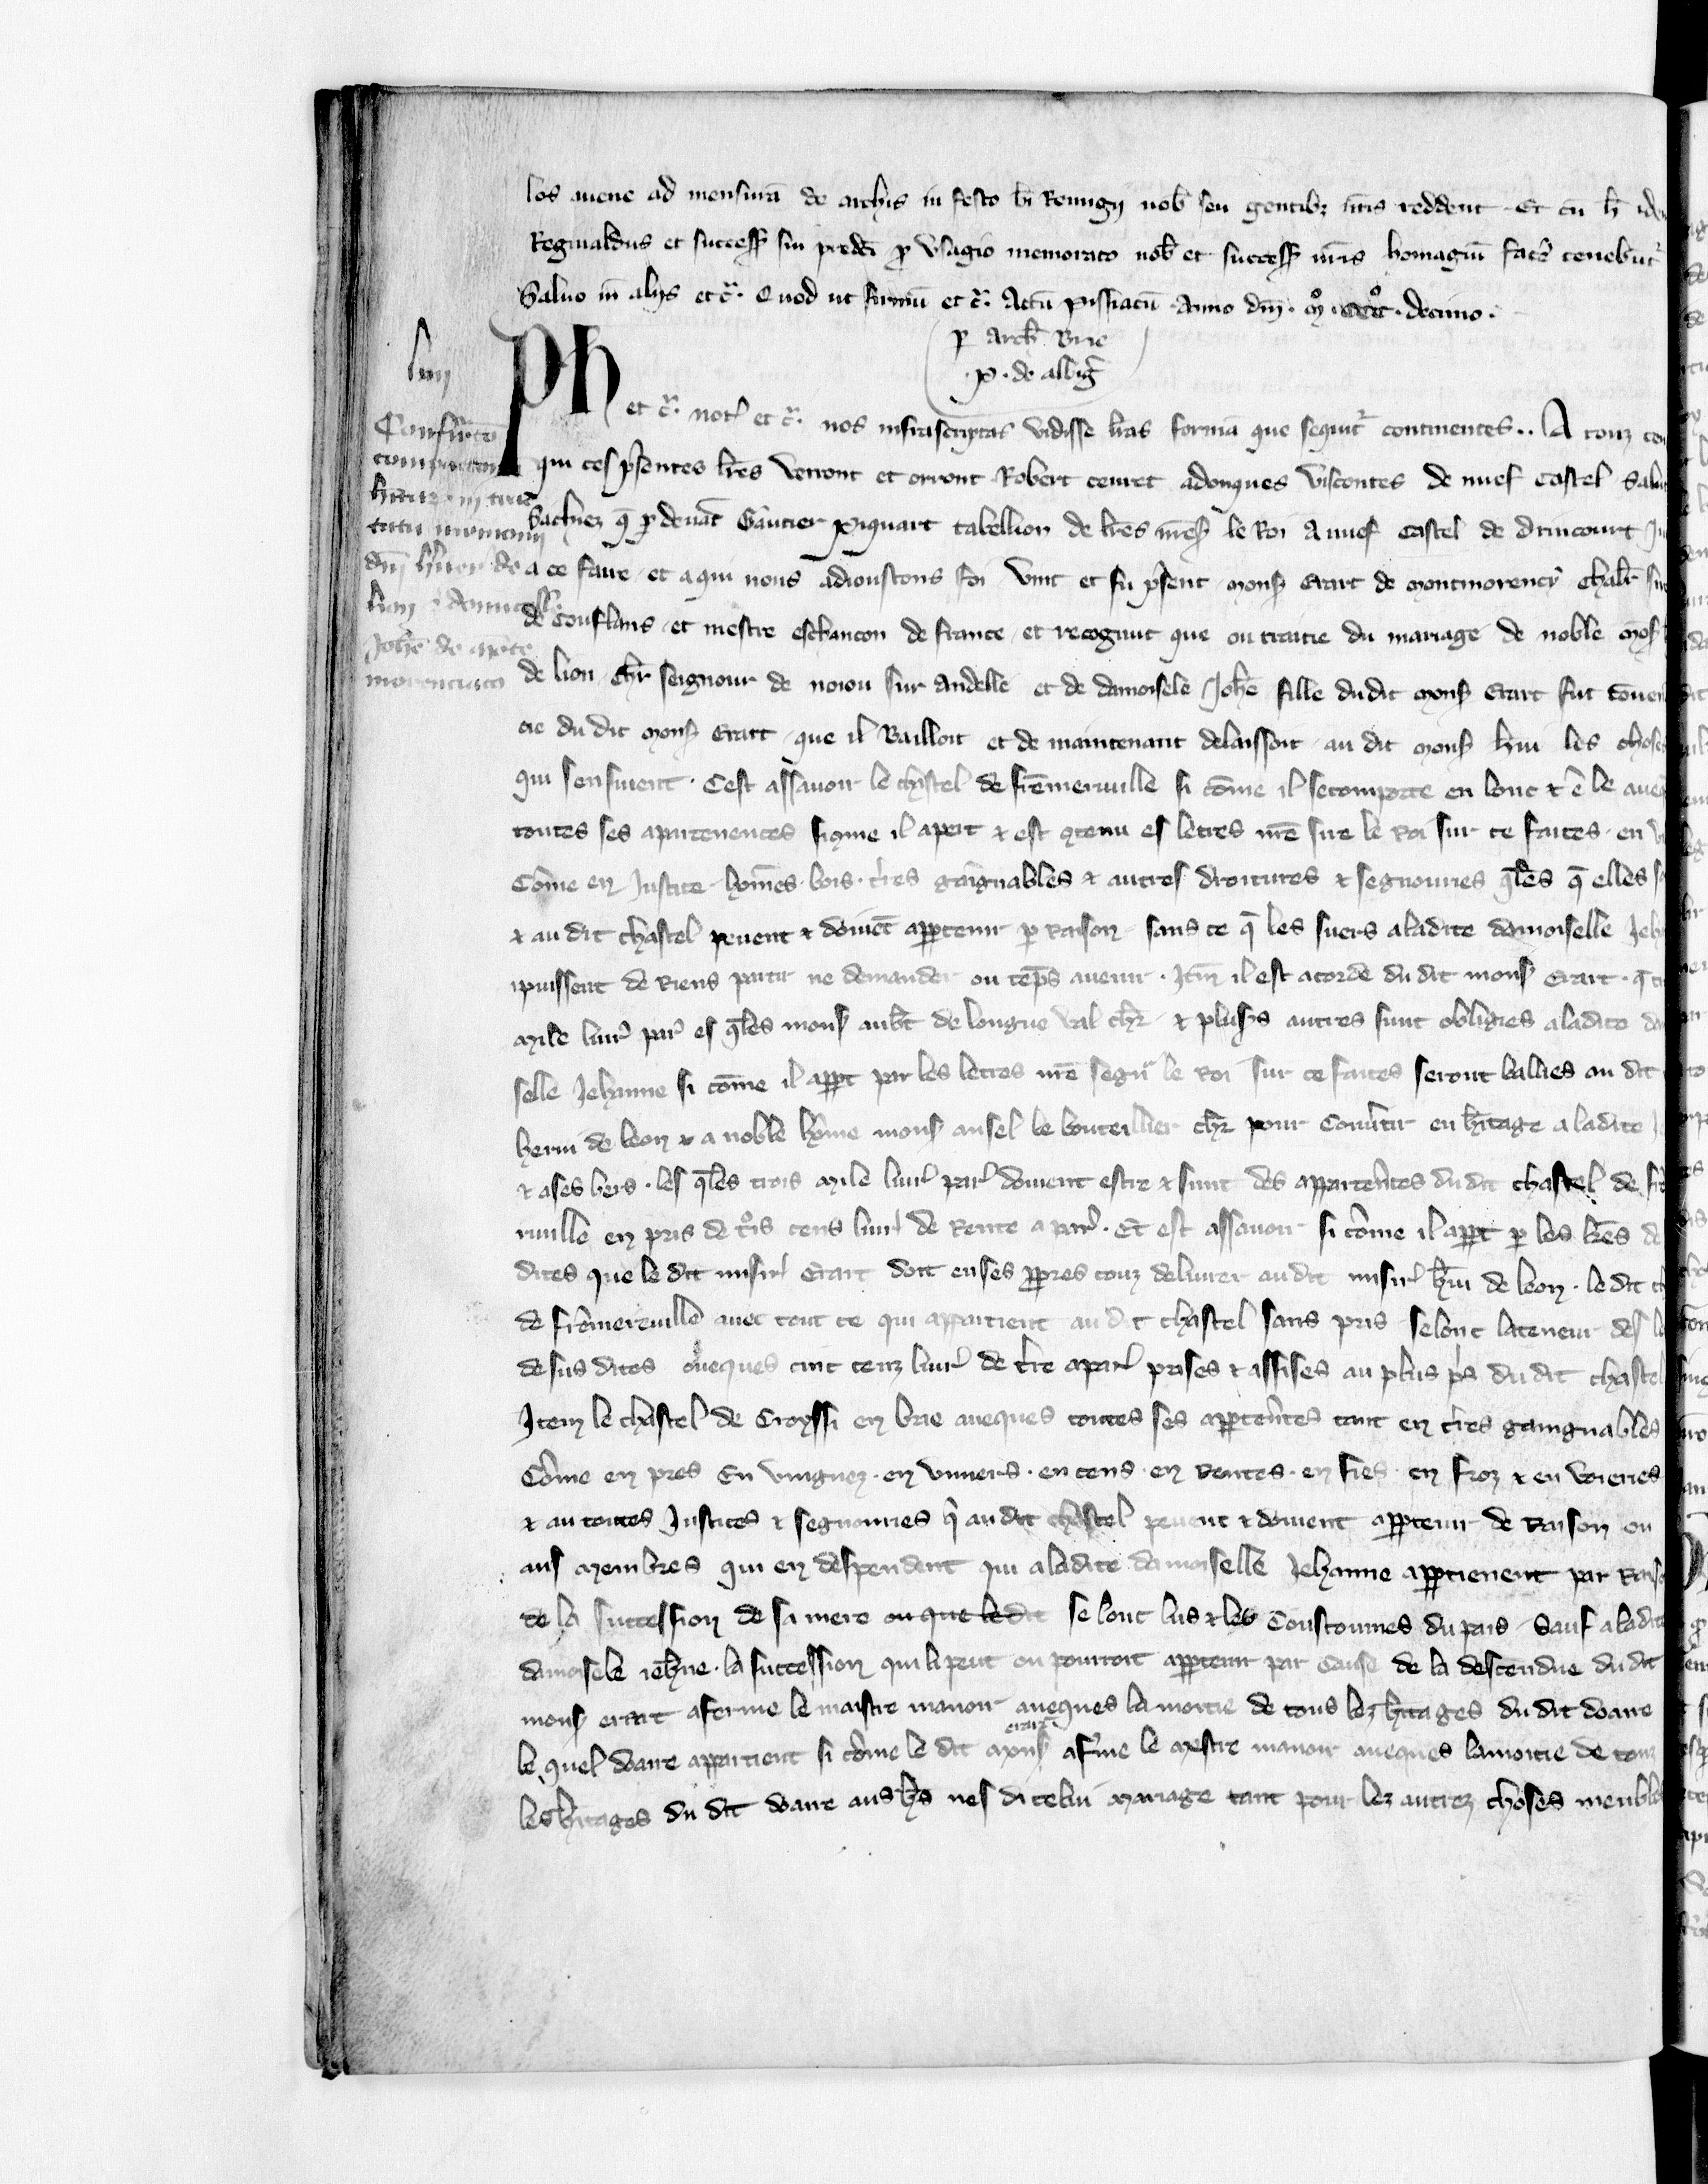 los avene ad mensurā de archis in festo bī Remigii nob̄ seu gentibꝫ nr̄is reddent. Et cū h̄ idem
Reginaldus et successꝭ sui predc̄i ꝓ usagio memorato nob̄ et successꝭ nr̄is homagiū facē tenebūtr̄
Salvo in aliis etc̄. Quod ut firmū etc̄. Actū pissiacū Anno dn̄i. mº. cccº. decimo.
ꝑ arch̄ Brie
.P. de albigr̄
liiii
Ph etc̄. notꝭ etc̄. nos infrascriptas vidisse lr̄as formā que sequitr̄ continentes.. A touz ceu
Confirm̄tō
qui ces p̄sentes lr̄es verront et orront Robert ceuret adonques viscontes de nuef castel salut
Sachiez q̄ ꝑ devāt Gautier piquart tabellion de lr̄es nr̄eSꝭ le Roi a nuef Castel de drincourt Ju
a ce faire et a qui nous adioustons foi vint et fu p̄sent monSꝭ Erart de montmorency chalr̄ sire
dn̄i hervei de
lion
de Conflans et mestre eschancon de france et recognut que ou traitie du mariage de noble monSꝭ
Joh̄e de mōte
de lion chr̄ seignour de noion sur andelle et de damoisele Joh̄e fille dudit monSꝭ Erart fut cōven
morenciaco
cie du dit monSꝭ Erart que il Bailloit et de maintenant delaissoit au dit monSꝭ h̄vi les choses
qui sensivent. Cest assavoir le chastel de frēmerville si cōme il secomporte en lonc ⁊ ē le aveq̄
toutes ses apartenences siqme il apert ⁊ est ꝯtenu es letres nr̄e sire le Roi sur ce faites. en v
Cōme en Justice hōmes. bois. tr̄res gāignables ⁊ autres droitures ⁊ segnouries q̄les q̄ elles s
⁊ au dit chastel pevent ⁊ doivēt apꝑtenir ꝑ Raison sans ce q̄ les suers aladite damoiselle Jeh
ipuissent de Riens partir ne demander ou tēps avenir. Itm̄ il est acorde du dit monSꝭ Erart. q̄ tr
mile livrꝭ parꝭ es q̄les monSꝭ aub̄t de longue val chr̄ ⁊ plusꝭs autres sunt obligies aladite da
selle Jehanne si cōme il apꝑt par les letres nr̄e segnr̄ le Roi sur ce faites seront balliees au dit
hervi de leon ⁊ a noble hōme monSꝭ ansel le bouteillier chr̄ pour Convr̄tir en h̄itage a ladite J
⁊ ases hers. les q̄les trois mile livrꝭ parꝭ doivent estre ⁊ sunt des appartēn̄tes dudit chastel de frē
rville en pris de tºis cens livrꝭ de Rente a parꝭ. Et est assavoir si cōme il apꝑt ꝑ les lr̄es de
dites que le dit misirꝭ Erart doit enses ꝓpres couz delivrer audit misirꝭ h̄vi de leon. le dit ch
de frēmerville avec tout ce qui appartient au dit chastel sans pris selonc lateneur des l
desus dites aveques cinc cenz livrꝭ de tr̄re aparꝭ prises ⁊ assises au plus p̄s du dit chastel
Item le chastel de Croyssi en brie aveques toutes ses apꝑten̄tes tant en tr̄res gaaignables
Cōme en pres En vingnez. en vivierS. en cens. en Rentes. en fies en froz ⁊ en voieries
⁊ au toutes Justices ⁊ segnouries q̄ au dit chastel pevent ⁊ doivent apꝑtenir de Raison ou
aus membres qui en despendent qui aladite damoiselle Jehanne apꝑtienent par Raiso
de la succession de sa mere ou que le dit se lonc lus ⁊ les Coustoumes du pais Sauf aladite
damoisele ieh̄ne. la succession qui li peut ou pourroit apꝑtenir par Cause de la descendue du dit
monSꝭ errat aferme le maistre manoir aveques la moitie de tous lez h̄itages du dit doaire
erart
le quel doaire appartient si cōme le dit monSꝭ af̄me le mestre manoir aveques lamoitie de touz
les h̄itages du dit doaire aus h̄s nes di celui mariage tant pour lez autrez choses meubles